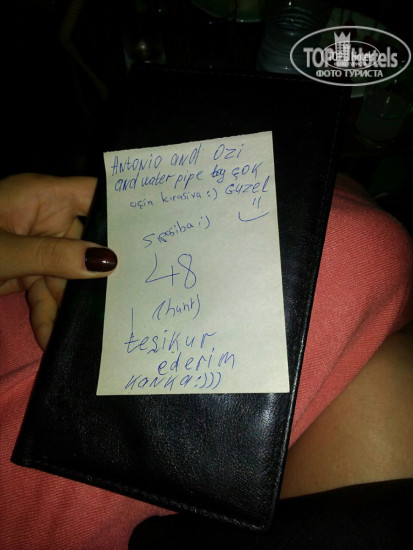 TOPHotels
ФОТО ТУРИСТА
Antonio and Ozi
and water pipe boy ÇOK
oçin kırasiva:) Güzel
spasiba:)
48
(hunt)
teşikur
ederim
KANKA:)))